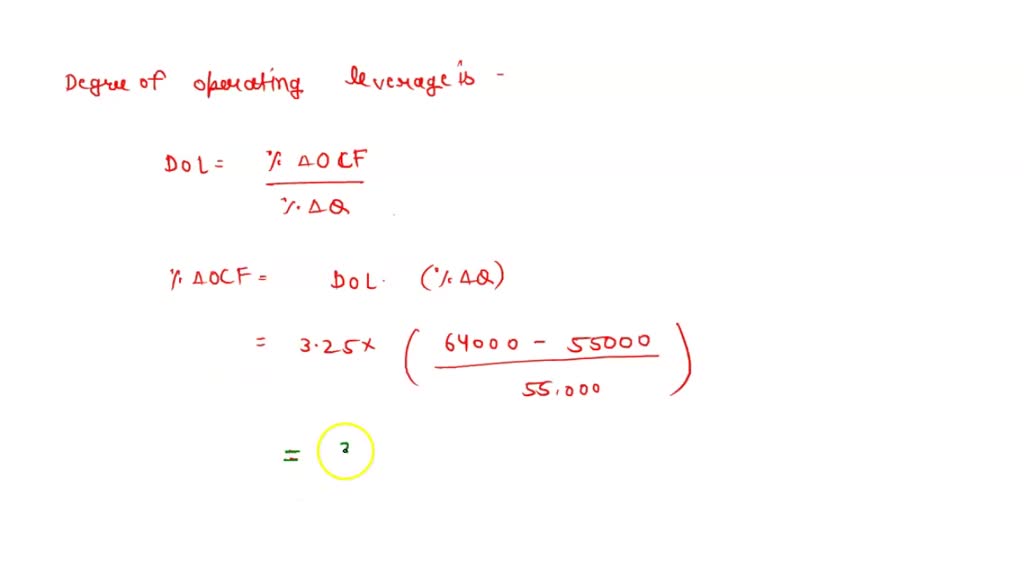 Degree of operating leverage is -
DOL = % ΔOCF
% ΔQ
% ΔOCF = DOL. (% ΔQ)
= 3.25 x ( 64000 - 55000
55,000 )
=